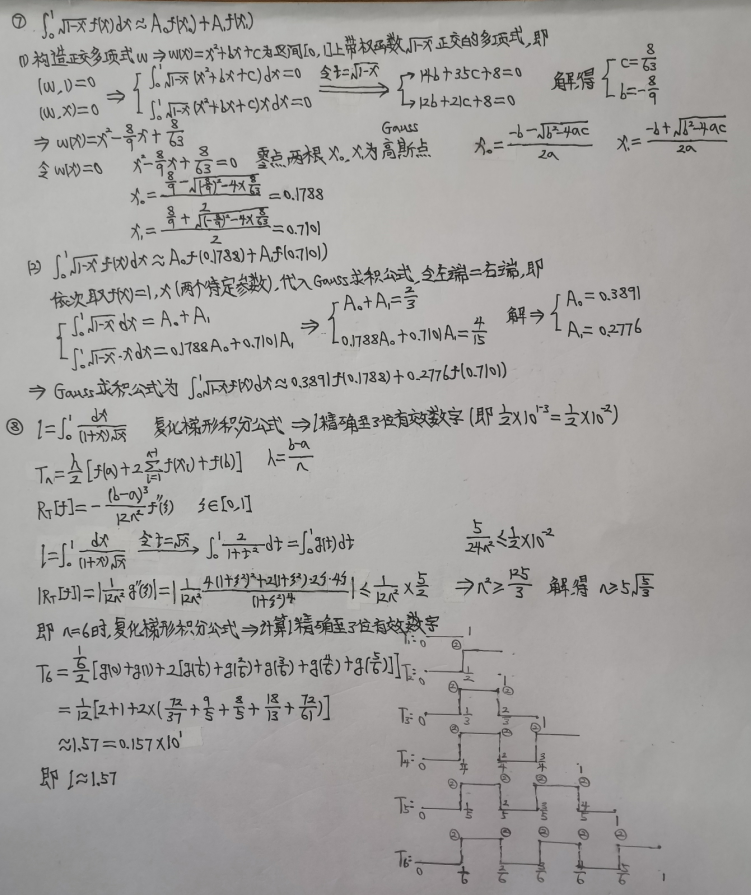 ⑦ ∫₀¹√(1-x) f(x)dx ≈ A₀f(x₀)+A₁f(x₁)
(1) 构造正交多项式 w ⇒ w(x)=x²+bx+c为区间[0,1]上带权函数√(1-x)正交的多项式,即
{(w,1)=0 (w,x)=0 ⇒ {∫₀¹√(1-x)(x²+bx+c)dx=0 ∫₀¹√(1-x)(x²+bx+c)xdx=0 令t=√(1-x) ⇒ {14b+35c+8=0 12b+21c+8=0 解得 {c=8/63 b=-8/9
⇒ w(x)=x²-8/9x+8/63
令w(x)=0 x²-8/9x+8/63=0 零点,两根x₀,x₁为Gauss高斯点 x₀=(-b-√(b²-4ac))/2a x₁=(-b+√(b²-4ac))/2a
x₀=(8/9-√((-8/9)²-4×8/63))/2=0.1788
x₁=(8/9+√((-8/9)²-4×8/63))/2=0.7101
(2) ∫₀¹√(1-x) f(x)dx ≈ A₀f(0.1788)+A₁f(0.7101)
依次取f(x)=1,x(两个待定参数),代入Gauss求积公式,令左端=右端,即
{∫₀¹√(1-x)dx=A₀+A₁ ∫₀¹√(1-x)·xdx=0.1788A₀+0.7101A₁ ⇒ {A₀+A₁=2/3 0.1788A₀+0.7101A₁=4/15 解⇒ {A₀=0.3891 A₁=0.2776
⇒ Gauss求积公式为 ∫₀¹√(1-x)f(x)dx≈0.3891f(0.1788)+0.2776f(0.7101)
⑧ I=∫₀¹dx/((1+x)√x) 复化梯形积分公式 ⇒I精确至3位有效数字(即1/2×10¹⁻³=1/2×10⁻²)
Tₙ=h/2[f(a)+2∑ᵢ₌₁ⁿ⁻¹f(xᵢ)+f(b)] h=(b-a)/n
R_T[f]=-(b-a)³/12n² f″(ξ) ξ∈[0,1]
I=∫₀¹dx/((1+x)√x) 令t=√x → ∫₀¹2/(1+t²)dt=∫₀¹g(t)dt 5/24n²≤1/2×10⁻²
|R_T[f]|=|1/12n² g″(ξ)|=|1/12n² (4(1+ξ²)²+2(1+ξ²)·2ξ·4ξ)/(1+ξ²)⁴|≤1/12n²×5/2 ⇒n²≥125/3 解得 n≥5√(5/3)
即 n=6时,复化梯形积分公式⇒计算I精确至3位有效数字
T₆=(1/6)/2[g(0)+g(1)+2[g(1/6)+g(2/6)+g(3/6)+g(4/6)+g(5/6)]]
=1/12[2+1+2×(72/37+9/5+8/5+18/13+72/61)]
≈1.57=0.157×10¹
即 I≈1.57
T₁= 0 1
T₂= 0 ② 1/2 1
T₃= 0 ② 1/3 ② 2/3 1
T₄= 0 ② 1/4 ② 2/4 ② 3/4 1
T₅= 0 ② 1/5 ② 2/5 ② 3/5 ② 4/5 1
T₆= 0 ② 1/6 ② 2/6 ② 3/6 ② 4/6 ② 5/6 1